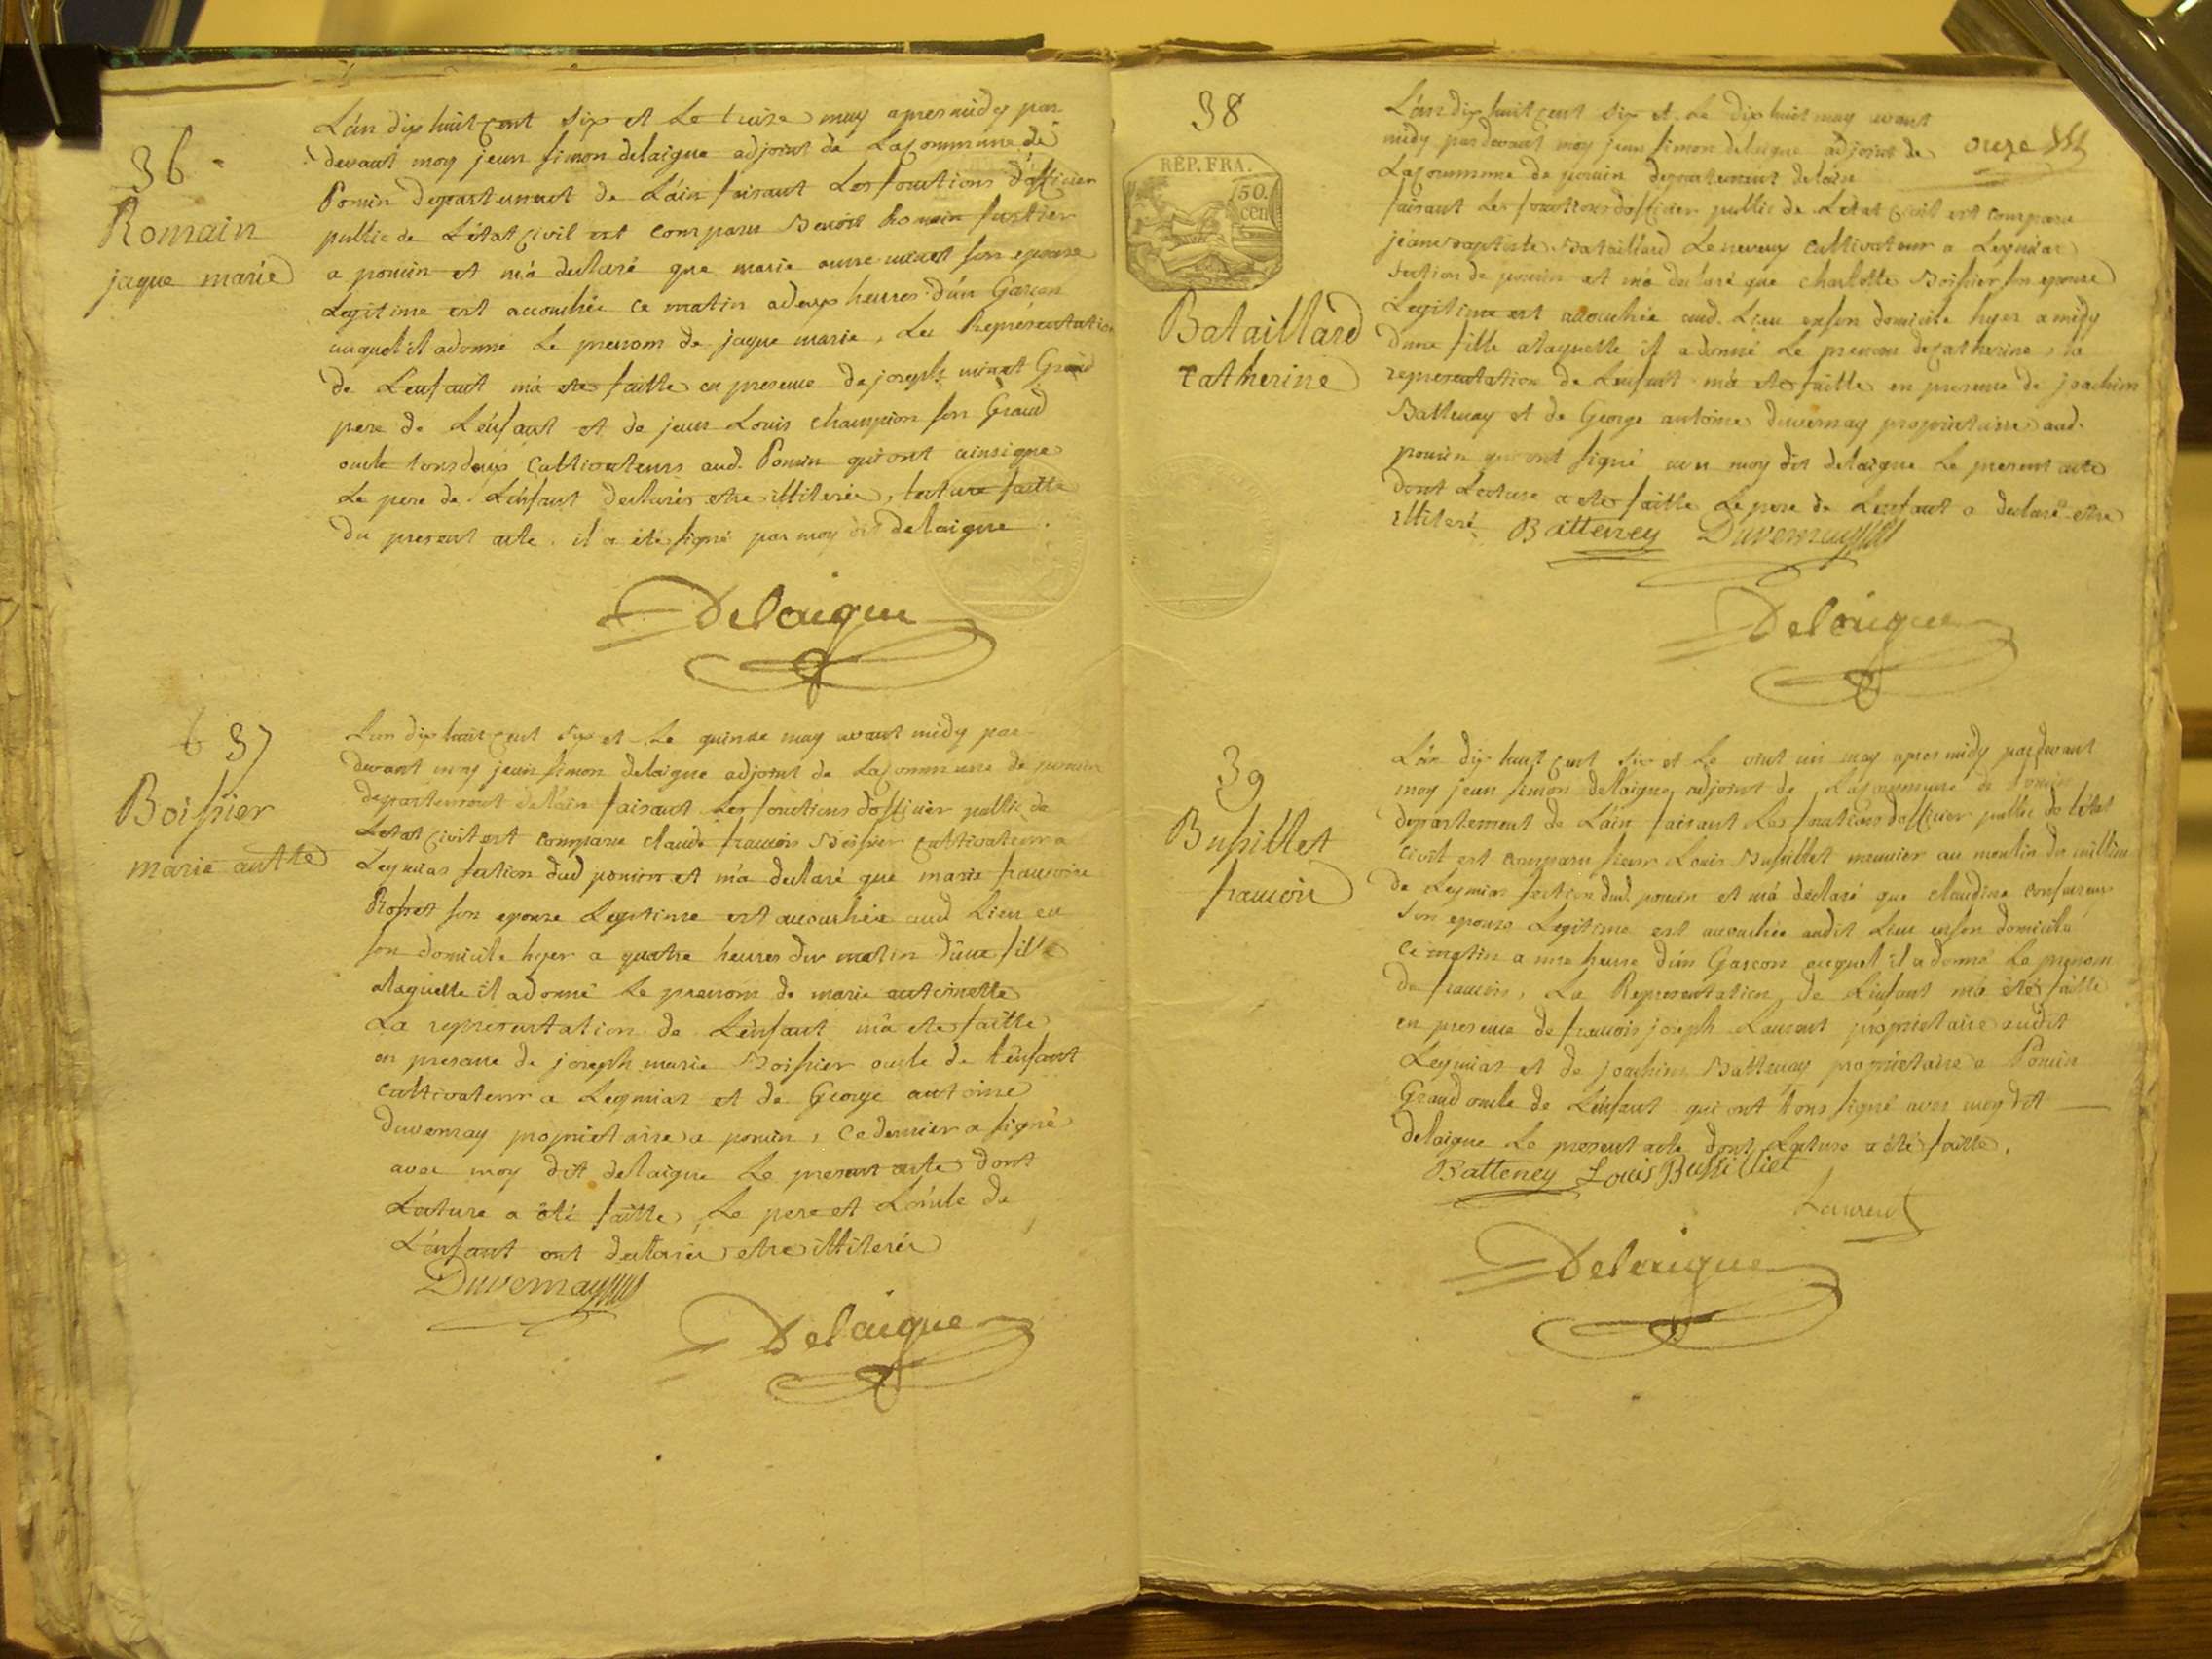 36
Romain
jaque marie
L'an dix huit cent six et Le treize may apres midy par
devant moy jean simon delaigue adjoint de La Commune de
Poncin departement de L'ain faisant Les fonctions d'officier
public de L'état Civil est comparu Benoit Romain
a poncin et m'a declaré que marie minet son epouse
Legitime est accouchée ce matin a deux heures d'un Garçon
auquel il a donné Le prenom de jaque marie, La Representation
de L'enfant m'a ete faitte en presence de joseph minet Grand
pere de L'enfant et de jean Louis champion son Grand
oncle tous deux Cultivateurs aud. Poncin qui ont ainsi que
Le pere de L'enfant declarés etre illiterés, lecture faitte
du present acte. il a été signé par moy dit delaigue.
Delaigue
37
Boissier
marie antte
L'an dix huit cent six et Le quinze may avant midy par
devant moy jean simon delaigue adjoint de La Commune de poncin
departement de L'ain faisant Les fonctions d'officier public de
L'etat Civil est comparu claude francois Boissier Cultivateur a
Leymiat section dud poncin et m'a declaré que marie francoise
Rosset son epouse Legitime est accouchée aud Lieu en
son domicile hyer a quatre heures du matin d'une fille
a laquelle il a donné Le prenom de marie antoinette
La representation de L'enfant m'a ete faitte
en presence de joseph marie Boissier oncle de L'enfant
Cultivateur a Leymiat et de George antoine
duvernay proprietaire a poncin, ce dernier a signé
avec moy dit delaigue Le present acte dont
Lecture a été faitte, Le pere et L'oncle de
L'enfant ont declarés etre illiterés
Duvernay
Delaigue
38
REP. FRA.
50.
cen
Bataillard
catherine
L'an dix huit cent six et Le dix huit may avant
midy pardevant moy jean simon delaigue adjoint de
onze
La Commune de poncin departement de l'ain
faisant Les fonctions d'officier public de L'etat Civil est comparu
jean baptiste Bataillard Le neveux cultivateur a Leymiat
section de poncin et m'a declaré que charlotte Boissier son epouse
Legitime est accouchée aud. Lieu en son domicile hyer a midy
d'une fille a laquelle il a donné Le prenom de catherine, la
representation de L'enfant m'a ete faitte en presence de joachim
Battenay et de George antoine duvernay proprietaires aud.
poncin qui ont signé avec moy dit delaigue Le present acte
dont Lecture a ete faitte Le pere de L'enfant a declaré etre
illiteré
Batteney Duvernay
Delaigue
39
Bussillet
francois
L'an dix huit cent six et Le vint un may apres midy pardevant
moy jean simon delaigue adjoint de La Commune de Poncin
departement de L'ain faisant Les fonctions d'officier public de L'état
Civil est comparu sieur Louis Bussillet meunier au moulin du
de Leymiat section dud. poncin et m'a declaré que claudine
son epouse Legitime est accouchée audit Lieu en son domicile
ce matin a une heure d'un Garcon auquel il a donné Le prenom
de francois, La Representation de L'enfant m'a été faitte
en presence de francois joseph Laurent proprietaire audit
Leymiat et de joachim Battenay proprietaire a Poncin
Grand oncle de L'enfant qui ont tous signé avec moy dit
delaigue Le present acte dont Lecture a été faitte.
Batteney Louis Bussilliet
Laurent
Delaigue